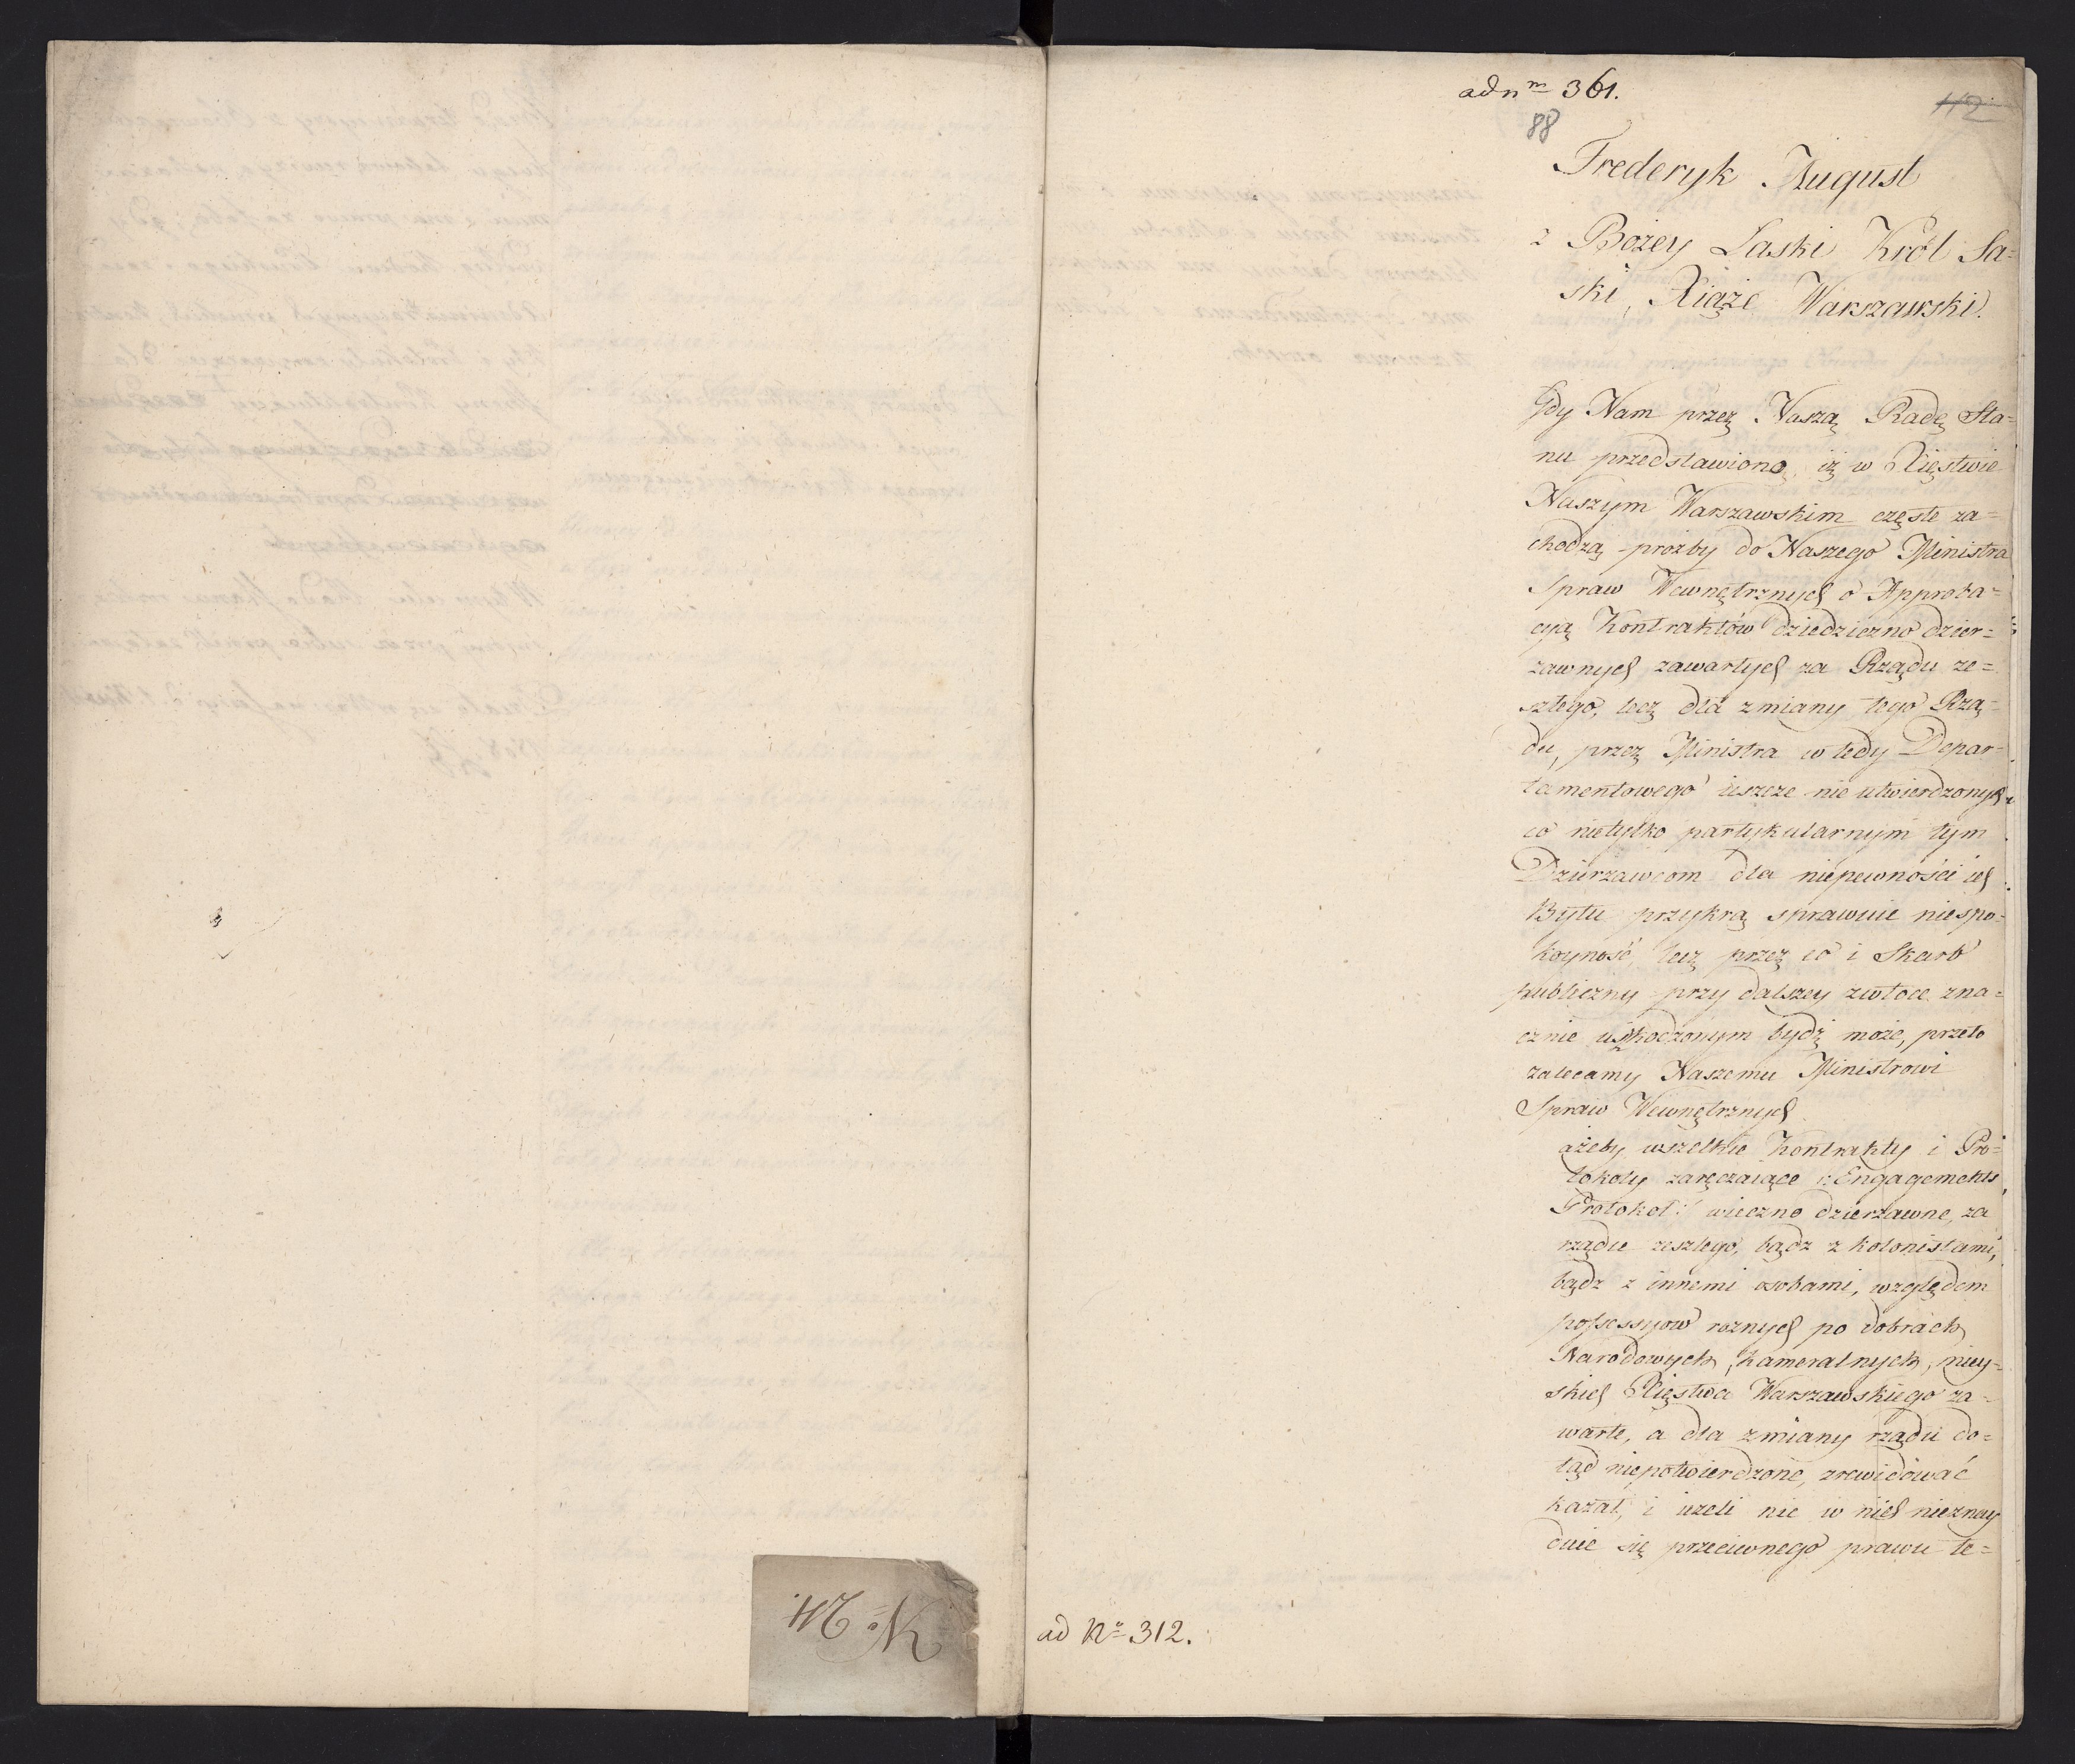 ad n<sup>m</sup> 361.
112
88
Frederyk August
z Bożey Łaski Król Sa=
ski, Xiąże Warszawski.
Gdy Nam przez Naszą Radę Sta=
nu przedstawiono, iż w Xięstwie
Naszym Warszawskim częste za=
chodzą proźby do Naszego Ministra
Spraw Wewnętrznych o Approba=
cyą Kontraktów dziedziczno dzier=
zawnych zawartych za Rządu ze=
szłego, lecz dla zmiany tego Rzą=
du, przez Ministra wtedy Depar=
tamentowego ieszcze nie utwierdzonych
co nietylko partykularnym tym
Dzierzawcom dla niepewności ich
Bytu przykrą sprawuie niespo=
koyność, lecz przez co i Skarb
publiczny przy dalszey zwłoce zna=
cznie uszkodzonym bydź może, przeto
zalecamy Naszemu Ministrowi
Spraw Wewnętrznych
ażeby wszelkie Kontrakty i Pro=
tokoły zaręczaiące /: Engagements
Protokol :/ wieczno dzierzawne, za
rządu zeszłego, bądz z kolonistami,
bądz z innemi osobami, względem
possessyow roznych po dobrach
Narodowych, kameralnych, miey=
skich Xięstwa Warszawskiego za=
warte, a dla zmiany rządu do=
tąd niepotwierdzone, zrewidować
kazał, i iezeli nic w nich nieznay
duie się przeciwnego prawu te=
No 24.
ad No 312.